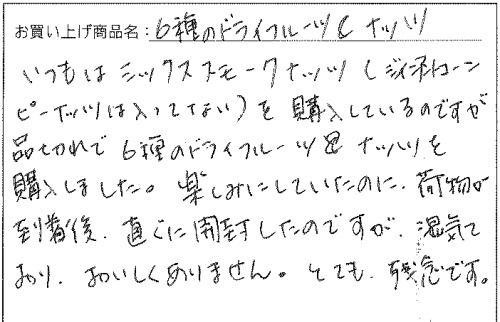 お買い上げ商品名：6種のドライフルーツ&ナッツ
いつもはミックススモークナッツ（ジャイアントコーン
ピーナッツは入ってない）を購入しているのですが
品切れで6種のドライフルーツ&ナッツを
購入しました。楽しみにしていたのに、荷物が
到着後、直ぐに開封したのですが、湿気て
おり、おいしくありません。とても、残念です。